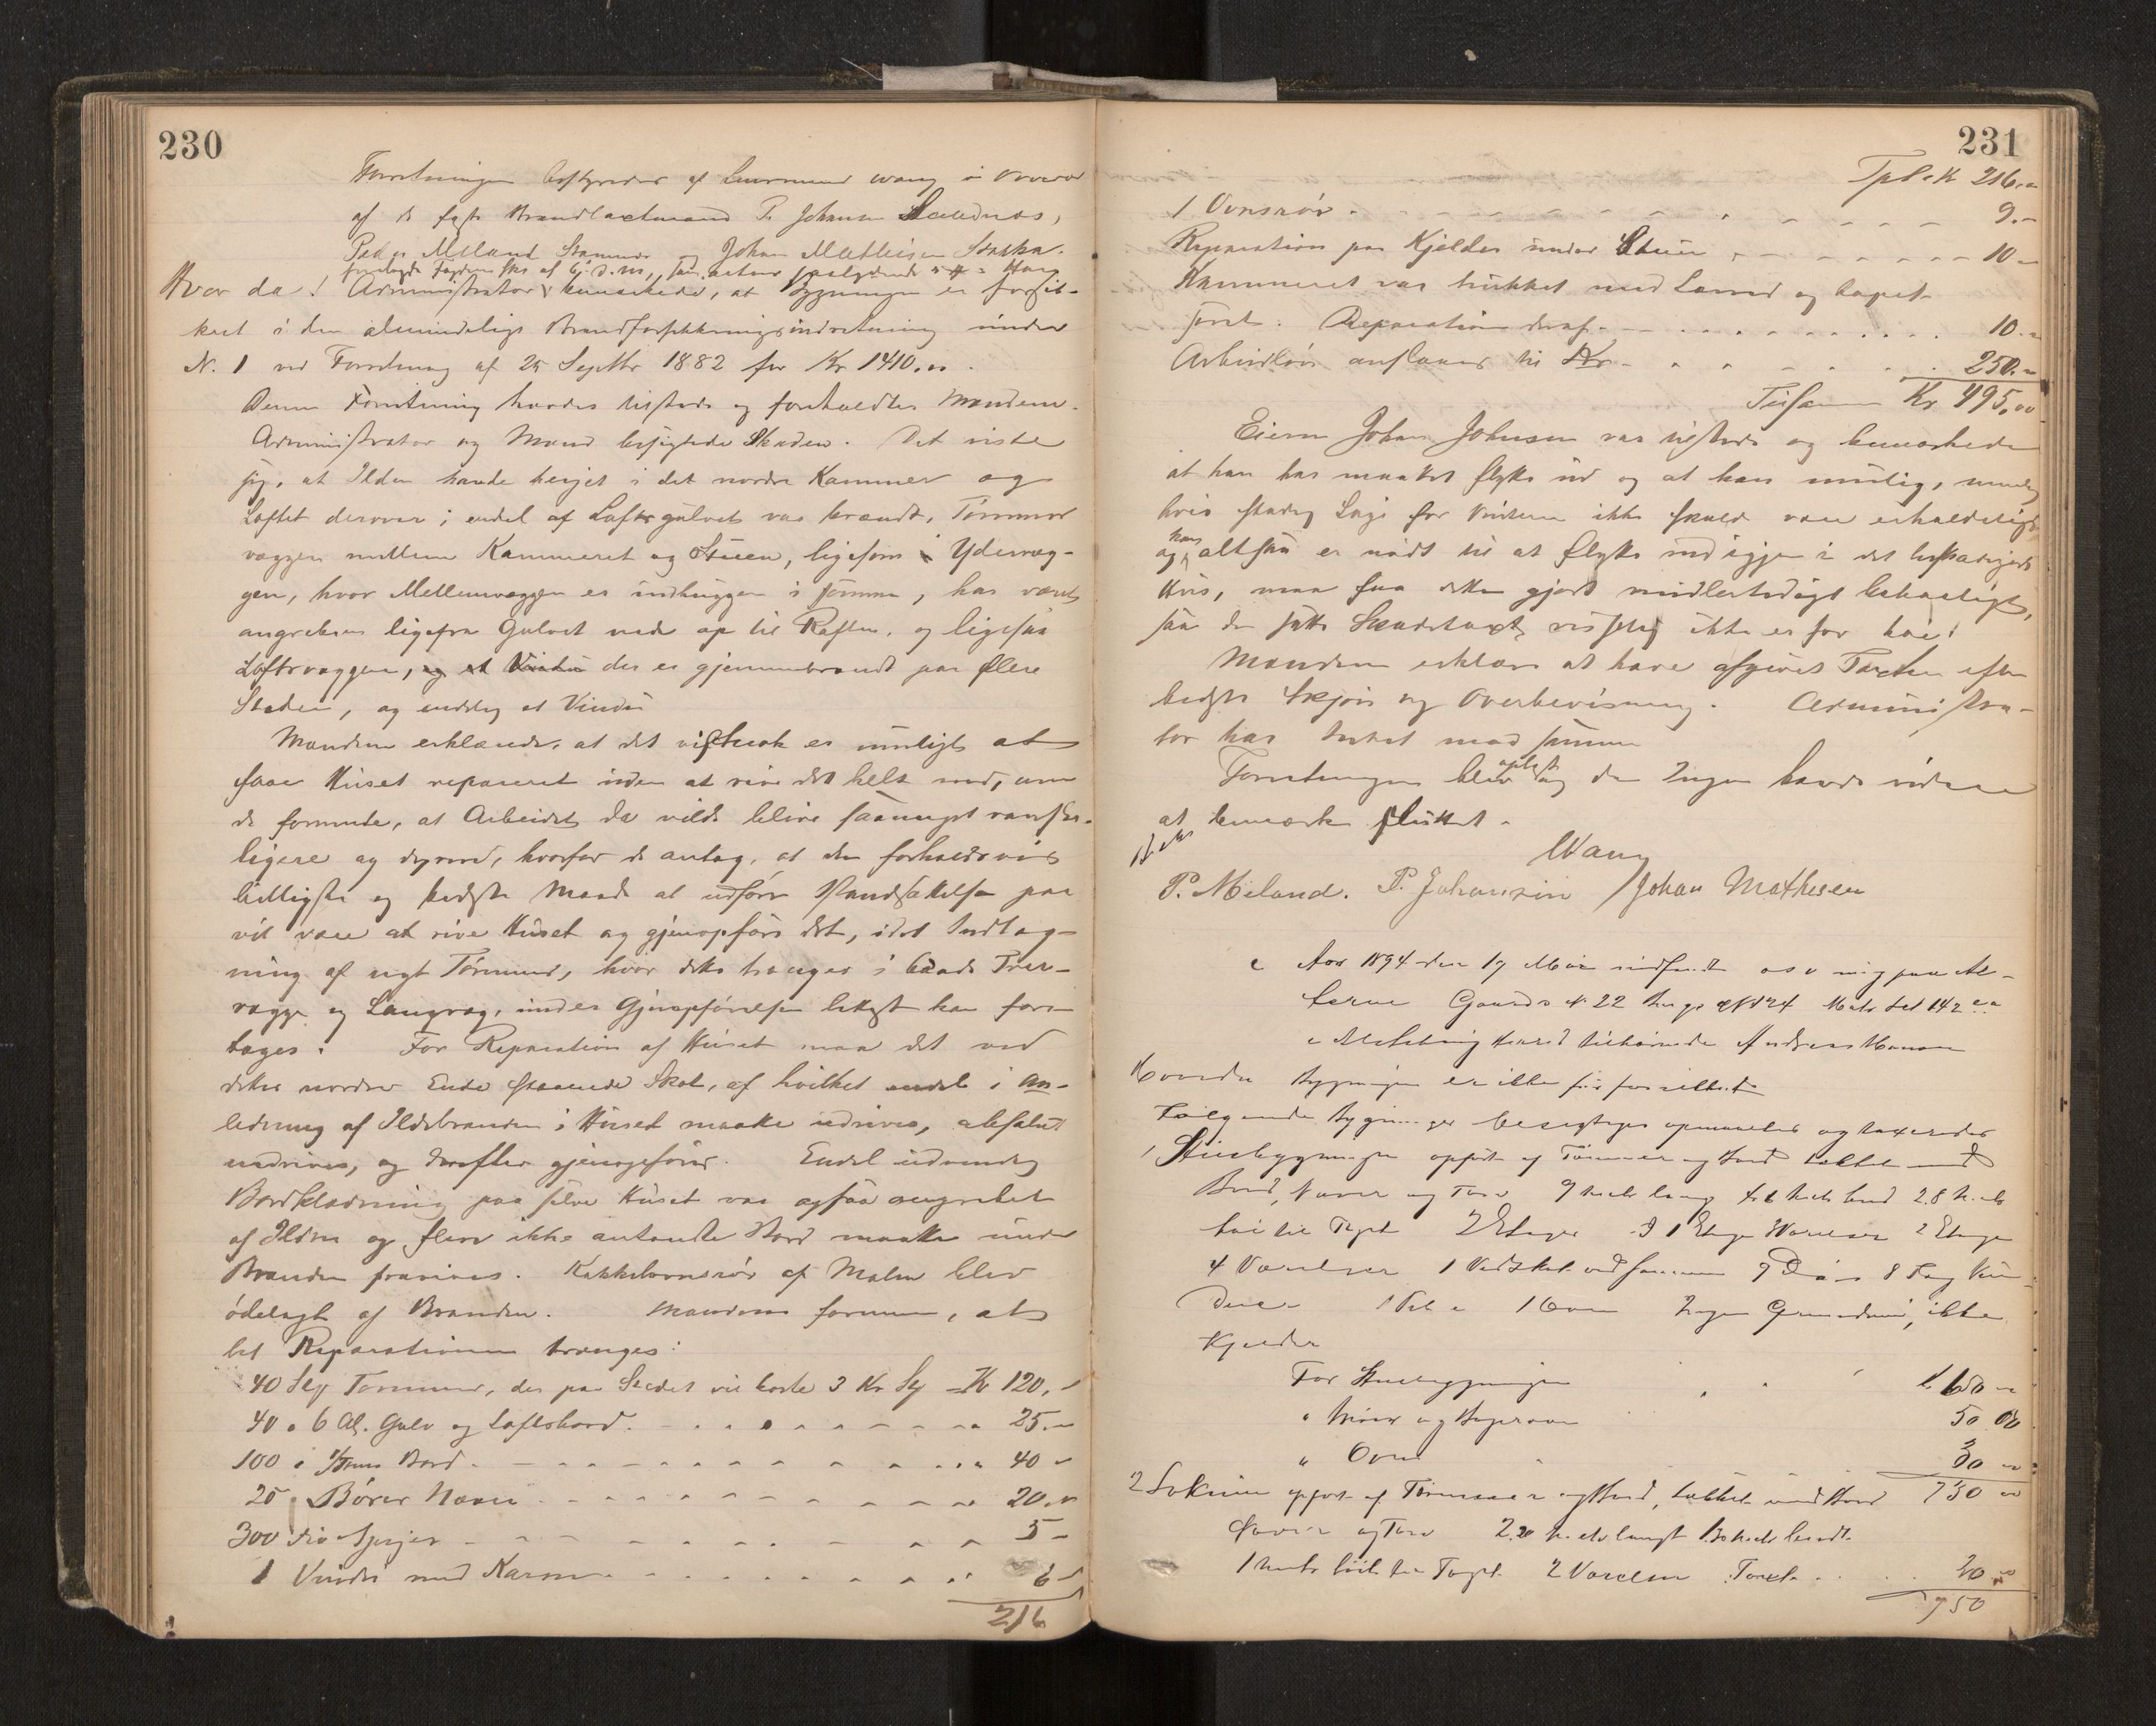 230
Forretningen bestyredes af Lensmand Wang i Overvær
af de faste Brandtaxtmænd P. Johansen Sandnes,
Peder Meland Stamnes og Johan Mathisen
fremlagde Fogdens Skr. af 6. d. M.,
Hvor da! Administrator bemærkede, at Bygningen er forsik-
kert i den almindelige Brandforsikkringsindretning under
N. 1 ved Forretning af 25 Septbr 1882 for Kr 1410,00.
Denne Forretning havdes tilstede og foreholdtes Mændene.
Administrator og Mænd besigtede Skaden. Det viste
sig, at Ilden havde herjet i det nordre Kammer og
Loftet derover; endel af Loftsgulvet var brændt, Tømmer
væggen mellem Kammeret og Stuen, ligesom i Ydervæg-
gen, hvor Mellemvæggen er indhuggen i samme, har været
angreben ligefra Gulvet nede op til Raften, og ligesaa
Loftsvæggen, og et Vindu der er gjennembrændt paa flere
Steder, og endelig et Vindu
Mændene erklærede, at det vistnok er muligt at
faae Huset repareret uden at rive det helt ned, men
de formente, at Arbeidet da vilde blive saameget vanske-
ligere og dyrere, hvorfor de antog, at den forholdsvis
billigste og bedste Maade at udføre Istandsættelse paa
vil være at rive Huset og gjenopføre det, idet Indtag-
ning af nyt Tømmer, hvor dette trænges i baade Tver-
vægge og Langvæg, under Gjenopførelsen lettest kan fore-
tages. For Reparation af Huset maa det ved
dettes nordre Ende staaende Skot, af hvilket endel i An-
ledning af Ildebranden i Huset maatte udrives, absolut
nedrives, og derefter gjenopføres. Endel udvendig
Bordklædning paa selve Huset var ogsaa angrebet
af Ilden og flere ikke antændte Bord maatte under
Branden fravives. Kakkelovnsrør af Malm blev
ødelagt af Branden. Mændene formene, at
til Reparationen trænges:
40 Stk Tømmer, der paa Stedet vil koste 3 Kr Stk = Kr 120.
40 a 6 Al. Gulv og Loftsbord 25.
100 Bord 40
20 Bører Næver 20.
300 Spiger 5
1 Vindu med Karm 6
216
231
Tpt. Kr 216.
1 Ovnsrør 9.
Reparation paa Kjelder under Stuen 10
Kammeret var trukket med Lærred og tapet-
seret. Reparation deraf 10.
Arbeidløn anslaaes til Kr 250.
Tilsammen Kr 495,00
Eieren Johan Johnsen var tilstede og bemærkede
at han har maattet flytte ud og at han mulig, nemlig
hvis stadig Logi for Vinteren ikke skulde være erholdeligt
og han altsaa er nødt til at flytte ind igjen i det beskadigede
Hus, maa faa dette gjort midlertidigt beboeligt,
saa den satte Skadetaxt visselig ikke er for høi!
Mændene erklære at have afgivet Taxten efter
bedste Skjøn og Overbevisning. Administra-
tor har intet mod samme
Forretningen blev oplæst og da Ingen havde videre
at bemærke sluttet.
Wang
P. Meland. P. Johansen Johan Mathesen
Aar 1894 den 17 Mai indfandt osv mig paa Al-
Gaards N. 22 Brugs N 24
Herred tilhørende Andreas Hansen
Hvorda Bygningen er ikke før forsikkret
Følgende Bygninger besigtiges opmaales og taxeredes
1 Stuebygningen opført af Tømmer og Bord tækket med
Bord, Næver og Torv 9 Meter lang 6 Meter bred 2.8 Meter
høi til Taget 2 Etager I 1 Etage Værelser 2 Etage
4 Værelser 1 Vedskot ved samme 9 Døre 8 Fag Vin-
duer 1 1 Ovn Ingen Grundmur, ikke
Kjelder
For Stuebygningen 650
50 00
" Ovn 30
2 opført af Tømmer og Bord, tækket med Bord 730
Næver og Torv 2.20 Meter langt 1.30 Meter bredt
1 Meter høit til Taget 2 Værelser Taxt 20
750